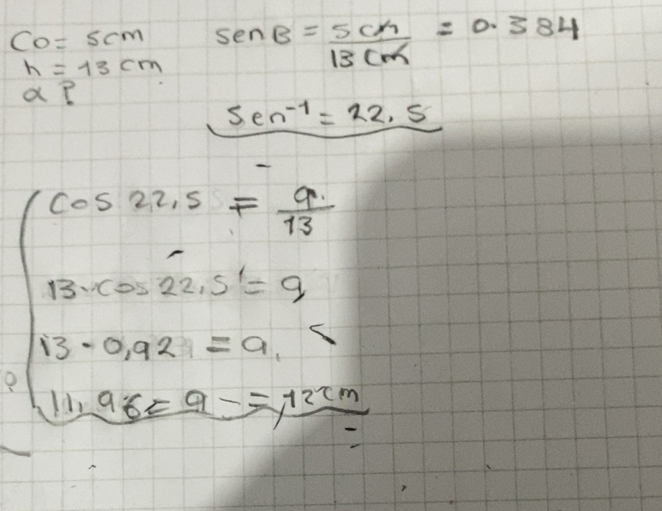 Co = 5cm
h = 13 cm
α ?
sen B = 5cm / 13 cm = 0.384
Sen⁻¹ = 22.5
cos 22,5 = a / 13
13·cos 22,5 = a
13 - 0,92 = a
11,96 = a - = 12cm